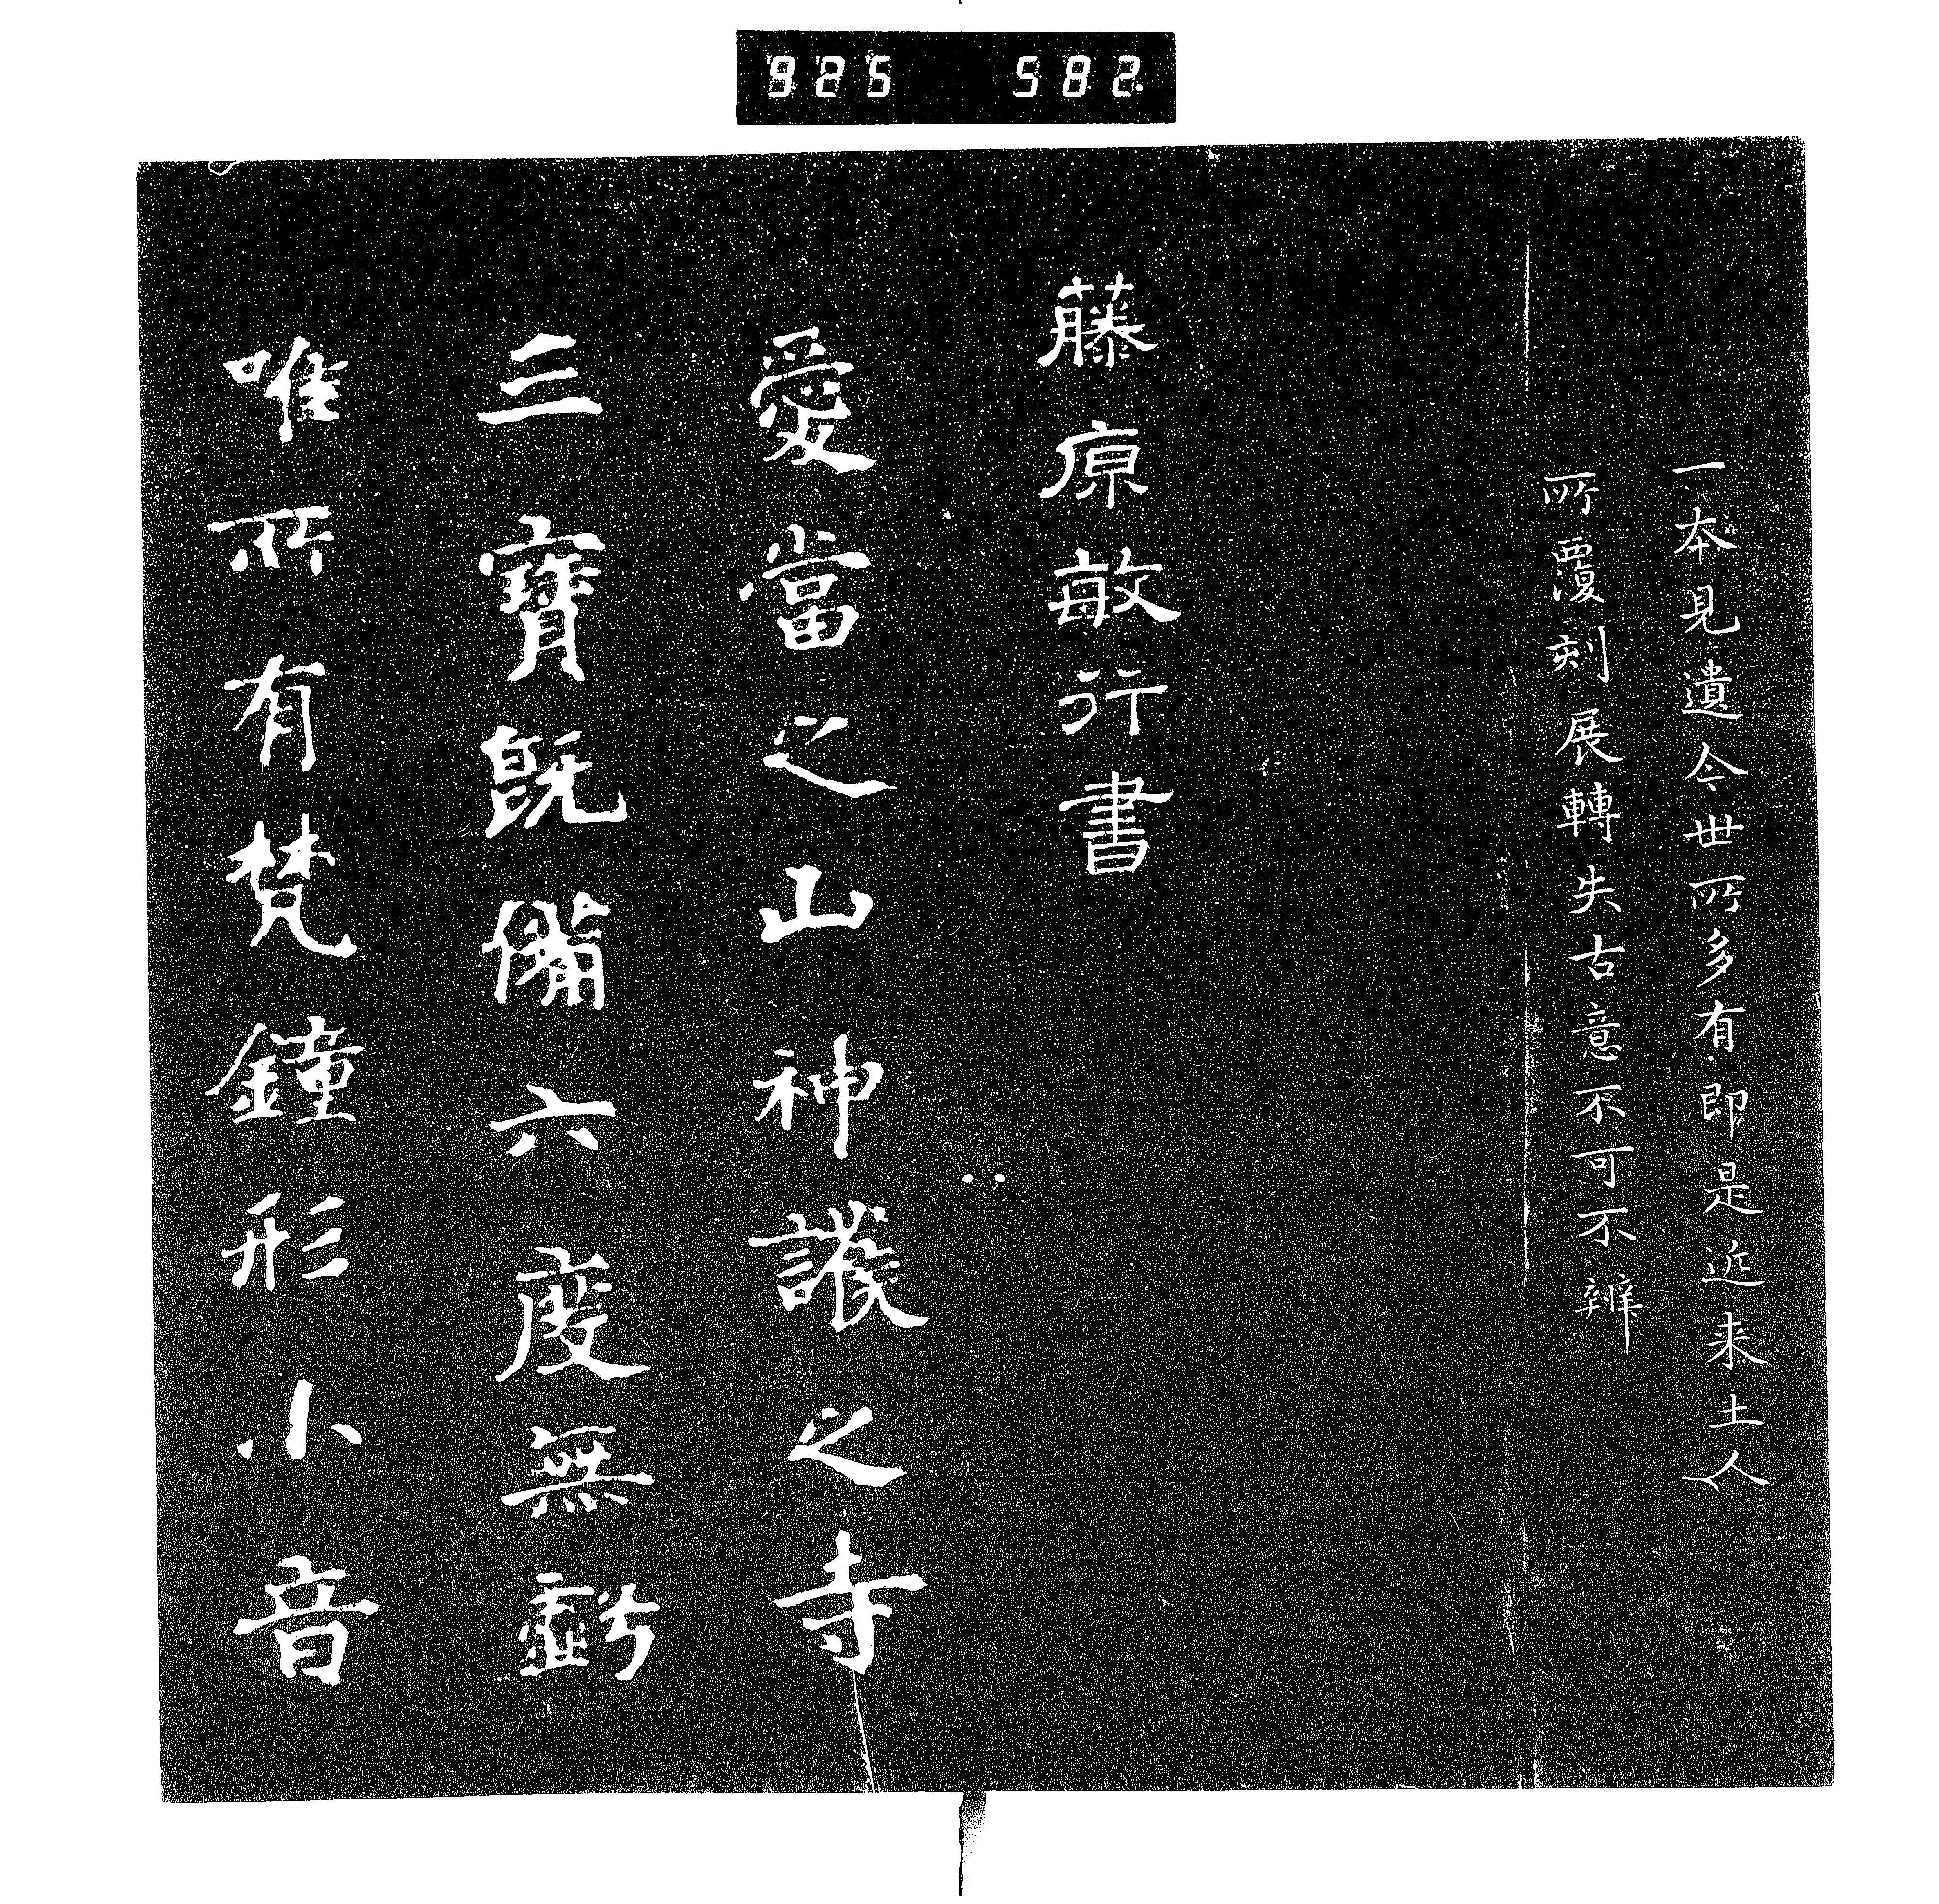 925 582
一本見遺今世所多有即是近来土人
所覆刻展轉失古意不可不辨
藤原敏行書
愛當之山神護之寺
三寶既備六度無虧
唯所有梵鐘形小音